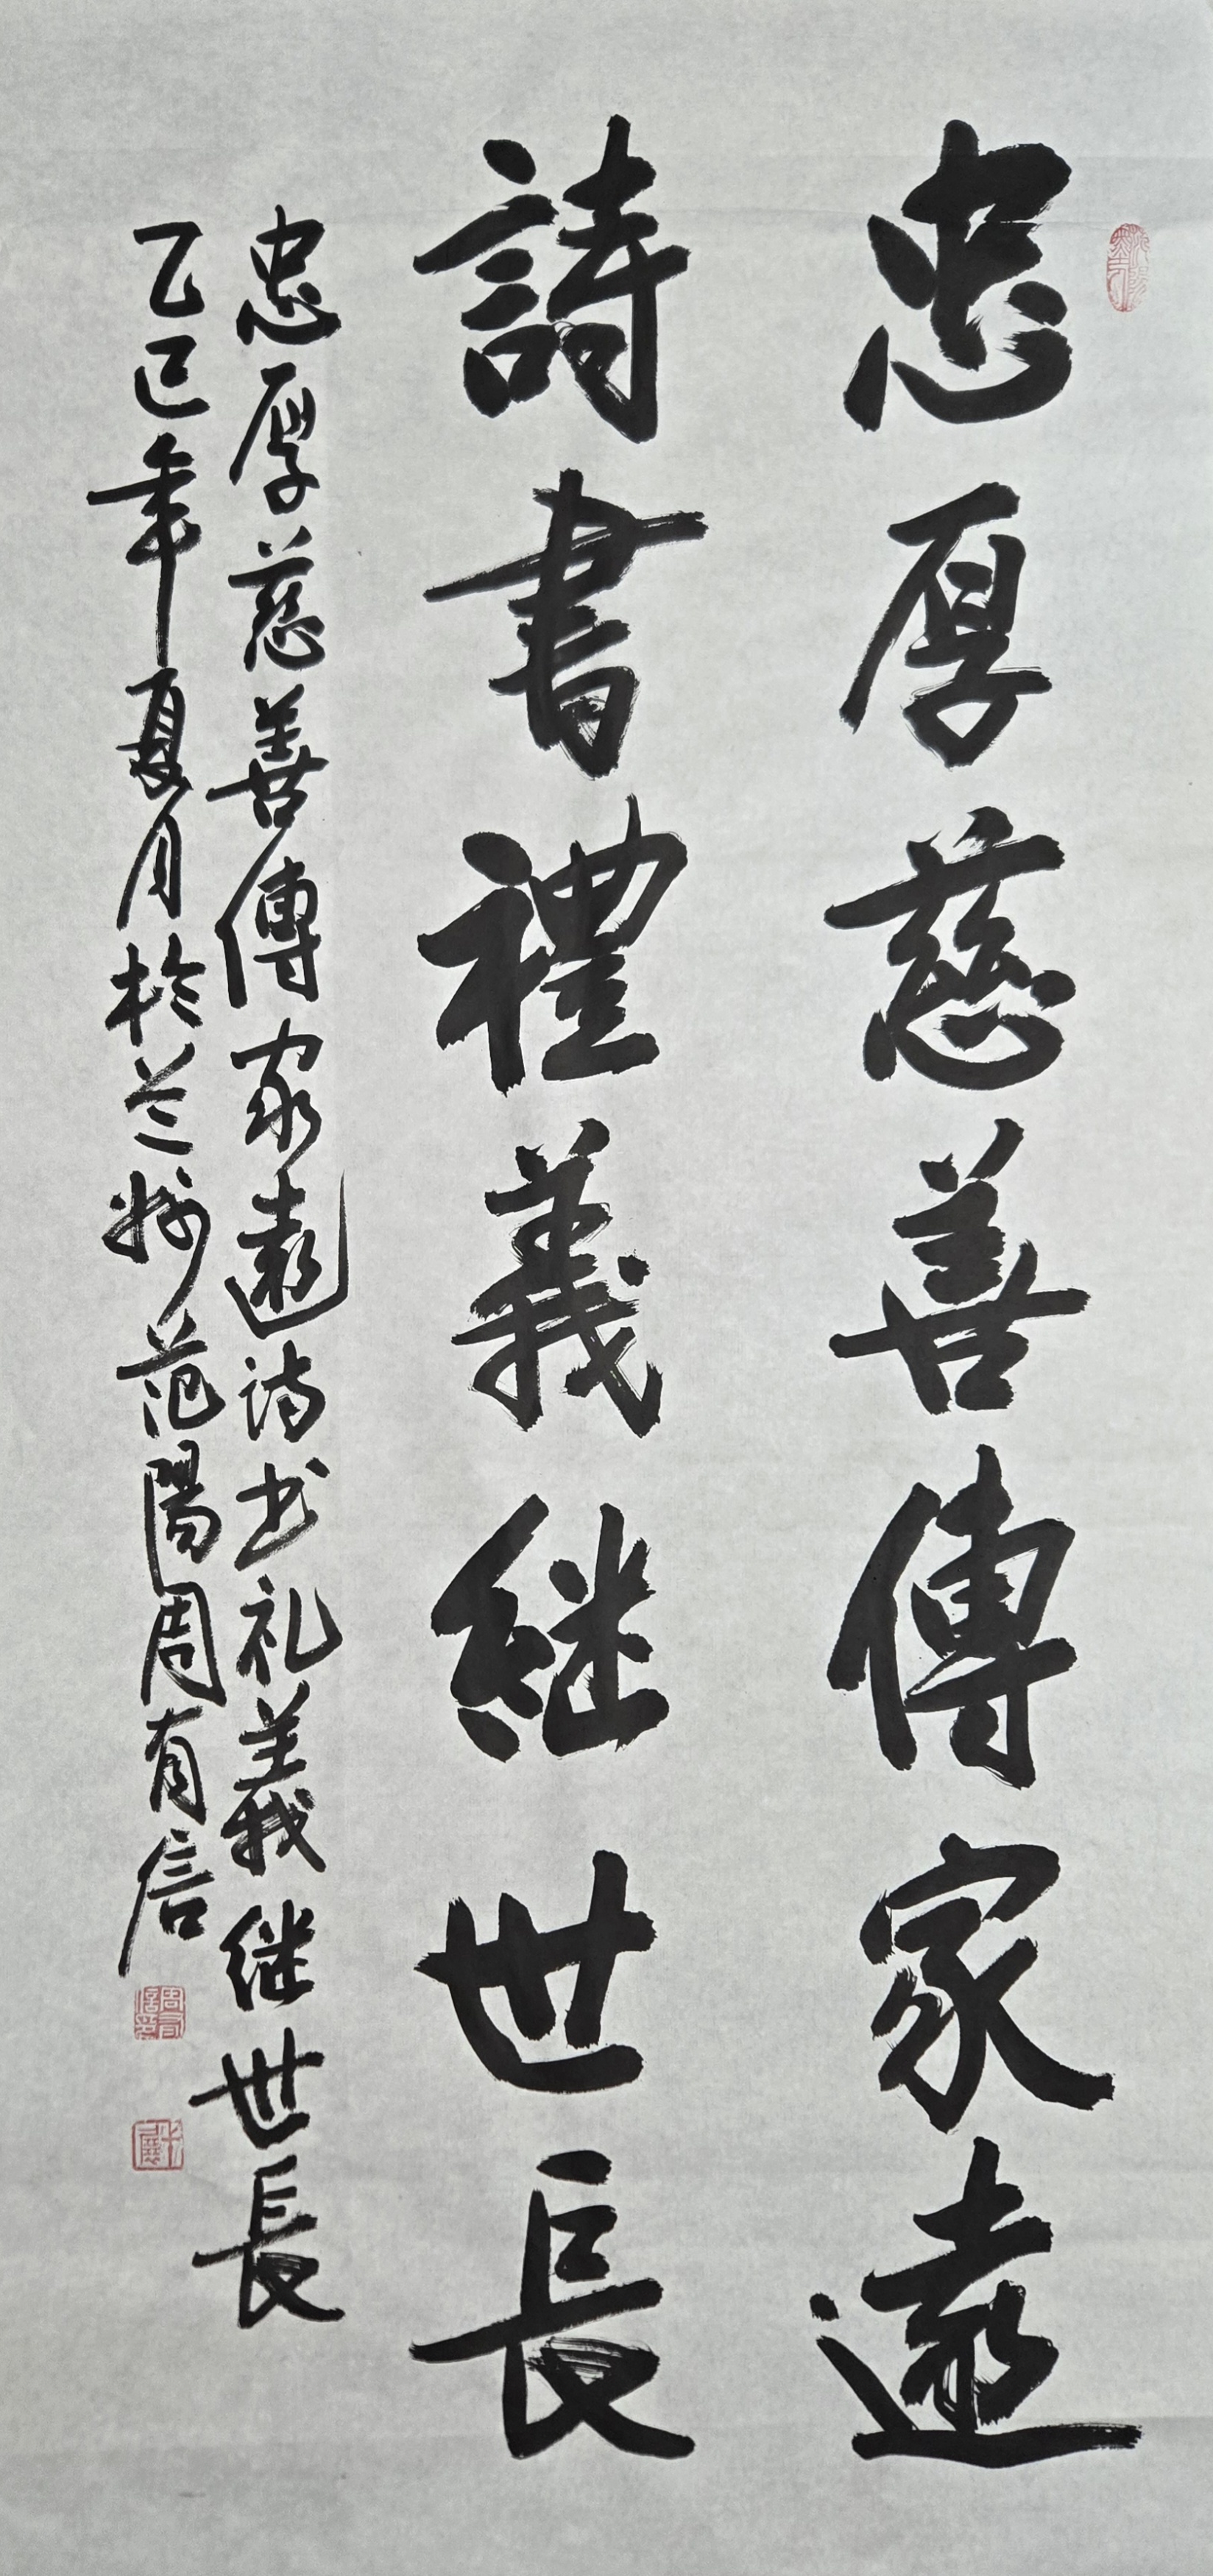 忠厚慈善傳家遠
詩書禮義继世長
忠厚慈善傳家遠诗书礼義继世長
乙巳年夏月於兰州范陽周有信